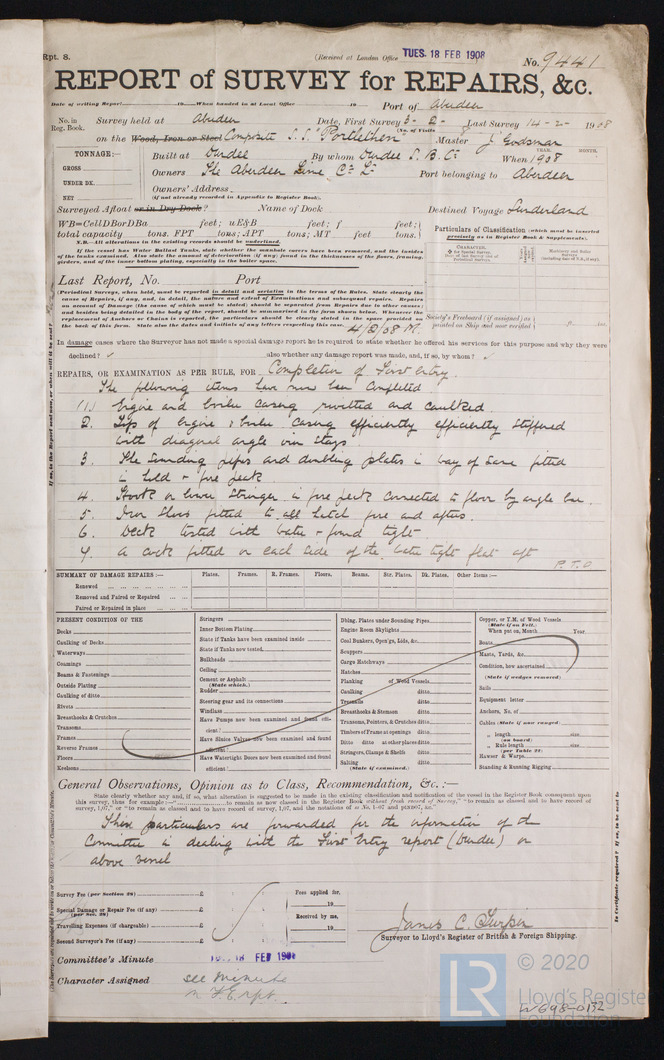 Rpt. 8.
(Received at London Office TUES. 18 FEB 1908
No. 9441
REPORT of SURVEY for REPAIRS, &c.
Date of writing Report 19 When handed in at Local Office 19 Port of Aberdeen
No. in Reg. Book. Survey held at Aberdeen Date, First Survey 3-2- Last Survey 14-2-1908
(No. of Visits
on the Wood, Iron or Steel Composite S.S. "Porthlethen" Master J. Godsman
TONNAGE:— Built at Dundee By whom Dundee S.B. Co When 1908
YEAR. MONTH.
GROSS
Owners The Aberdeen Line Co Ld Port belonging to Aberdeen
UNDER DK.
Owners' Address
NET
(if not already recorded in Appendix to Register Book).
Surveyed Afloat or in Dry Dock? Name of Dock Destined Voyage Sunderland
WB=CellDBorDBa feet; uE&B feet; f feet;
total capacity tons. FPT tons; APT tons; MT feet tons.
Particulars of Classification (which must be inserted precisely as in Register Book & Supplements).
N.B.—All alterations in the existing records should be underlined.
If the vessel has Water Ballast Tanks, state whether the manhole covers have been removed, and the insides of the tanks examined. Also state the amount of deterioration (if any) found in the thicknesses of the floors, framing, girders, and of the inner bottom plating, especially in the boiler space.
CHARACTER.
Last Report, No. Port
(Periodical Surveys, when held, must be reported in detail and seriatim in the terms of the Rules. State clearly the cause of Repairs, if any, and, in detail, the nature and extent of Examinations and subsequent repairs. Repairs on account of Damage (the cause of which must be stated) should be separated from Repairs due to other causes; and besides being detailed in the body of the report, should be summarised in the form shown below. Whenever the replacement of Anchors or Chains is reported, the particulars should be clearly stated in the space provided on the back of this form. State also the dates and initials of any letters respecting this case.
4/2/08 M.
Society's Freeboard (if assigned) as painted on Ship and now verified
In damage cases where the Surveyor has not made a special damage report he is required to state whether he offered his services for this purpose and why they were
declined? ✓ also whether any damage report was made, and, if so, by whom? ✓
REPAIRS, OR EXAMINATION AS PER RULE, FOR Completion of First Entry
The following items have now been completed
(1.) Engine and boiler casing rivitted and caulked.
2. Tops of engine & boiler casing efficiently efficiently stiffened
with diagonal angle iron stays.
3. The sounding pipes and doubling plates in way of same fitted
in hold & fore peak
4. Hook on lower stringer in fore peak connected to floor by angle bar.
5. Iron shoes fitted to all hatch fore and afters.
6. Deck tested with water & found tight.
7. A cock fitted on each side of the water tight flat aft
P.T.O
SUMMARY OF DAMAGE REPAIRS:— Plates. Frames. R. Frames. Floors. Beams. Str. Plates. Dk. Plates. Other Items:—
Renewed
Removed and Faired or Repaired
Faired or Repaired in place
PRESENT CONDITION OF THE
Decks
Caulking of Decks
Waterways
Coamings
Beams & Fastenings
Outside Plating
Caulking of ditto
Rivets
Breasthooks & Crutches
Transoms
Frames
Reverse Frames
Floors
Keelsons
Stringers
Inner Bottom Plating
State if Tanks have been examined inside
State if Tanks now tested
Bulkheads
Ceiling
Cement or Asphalt
(State which.)
Rudder
Steering gear and its connections
Windlass
Have Pumps now been examined and found efficient?
Have Sluice Valves now been examined and found efficient?
Have Watertight Doors now been examined and found efficient?
Dblng. Plates under Sounding Pipes
Engine Room Skylights
Coal Bunkers, Open'gs, Lids, &c.
Scuppers
Cargo Hatchways
Hatches
Planking of Wood Vessels
Caulking ditto
Treenails ditto
Breasthooks & Stemson ditto
Transoms, Pointers, & Crutches ditto
Timbers of Frame at openings ditto
Ditto ditto at other places ditto
Stringers, Clamps & Shelfs ditto
Salting ditto
(State if examined.)
Copper, or Y.M. of Wood Vessels
(State if on Felt.)
When put on, Month Year
Boats
Masts, Yards, &c.
Condition, how ascertained
(State if wedges removed)
Sails
Equipment letter
Anchors, No. of
Cables (State if now ranged)
„ length size
(on board)
„ Rule length size
(per Table 22)
Hawser & Warps
Standing & Running Rigging
General Observations, Opinion as to Class, Recommendation, &c.:—
State clearly whether any and, if so, what alteration is suggested to be made in the existing classification and notification of the vessel in the Register Book consequent upon
These particulars are forwarded for the information of the
Committee in dealing with the First Entry report (Dundee) on
above vessel
Survey Fee (per Section 28) £
Special Damage or Repair Fee (if any) £
(per Sec. 28)
Travelling Expenses (if chargeable) £
Second Surveyor's Fee (if any) £
Fees applied for,
19
Received by me,
19
James C. Turpin
Surveyor to Lloyd's Register of British & Foreign Shipping.
Committee's Minute 18 FEB 1908
Character Assigned see minute
on F.E. rpt.
LR
© 2020
Lloyd's Register
Foundation
W698-0132